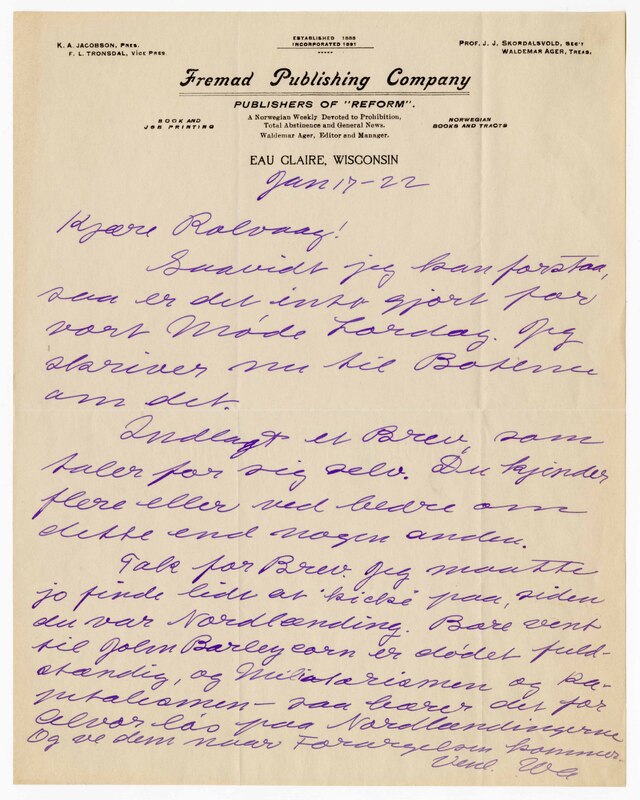 K. A. JACOBSON, PRES.
F. L. TRONSDAL, VICE PRES.
ESTABLISHED 1888
INCORPORATED 1891
PROF. J. J. SKORDALSVOLD, SEC'Y
WALDEMAR AGER, TREAS.
Fremad Publishing Company
PUBLISHERS OF "REFORM".
BOOK AND
JOB PRINTING
A Norwegian Weekly Devoted to Prohibition,
Total Abstinence and General News.
Waldemar Ager, Editor and Manager.
NORWEGIAN
BOOKS AND TRACTS
EAU CLAIRE, WISCONSIN
Jan 17-22
Kjære Rolvaag!
Saavidt jeg kan forstaa,
saa er det intet gjort for
vort Møde Lørdag. Jeg
skriver nu til
om det.
Indlagt et Brev, som
taler for sig selv. Du kjender
flere eller ved bedre om
dette end nogen anden.
Tak for Brev. Jeg maatte
jo finde lidt at "kicke" paa, siden
du var Nordlænding. Bare vent
til John Barleycorn er dødet fuld-
stændig, og Militarismen og ka-
pitalismen – saa bærer det for
Alvor løs paa Nordlændingerne
Og ve dem naar Forargelsen kommer.
Venl. WA